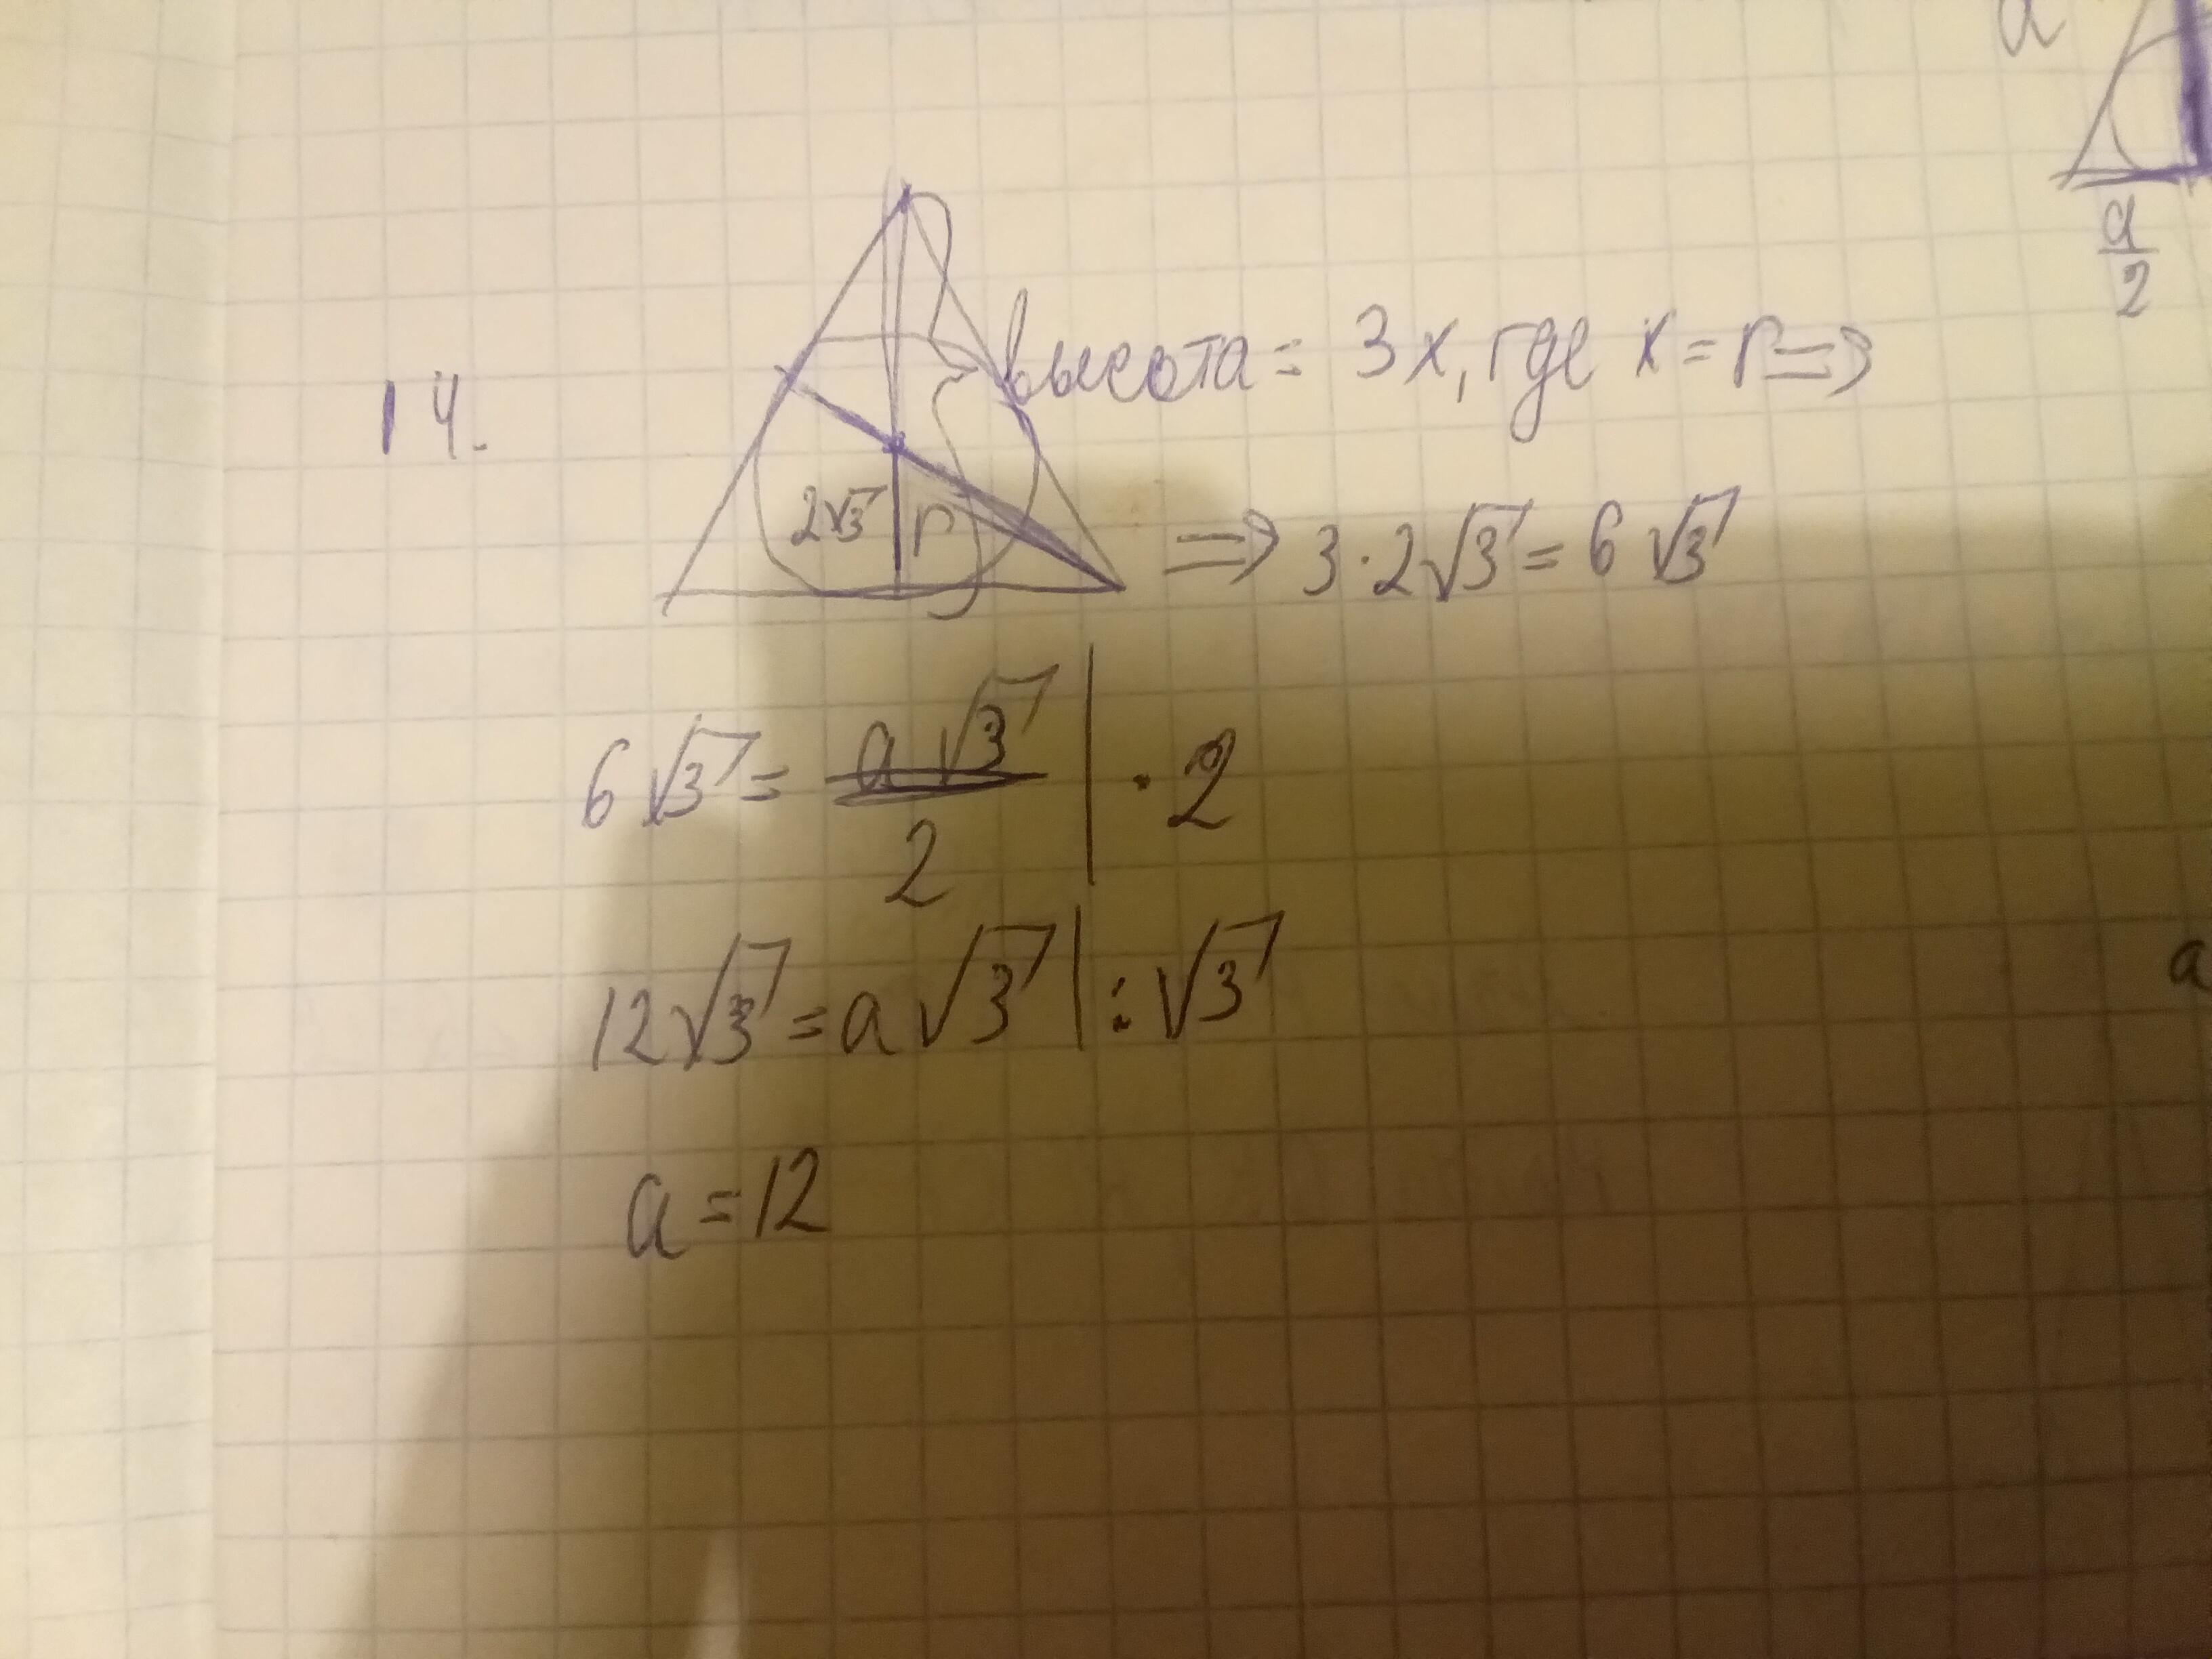 a
a/2
14.
высота = 3x, где x = r ⇒
2√3 r
⇒ 3·2√3 = 6√3
6√3 = a√3/2 | · 2
12√3 = a√3 | : √3
a
a = 12